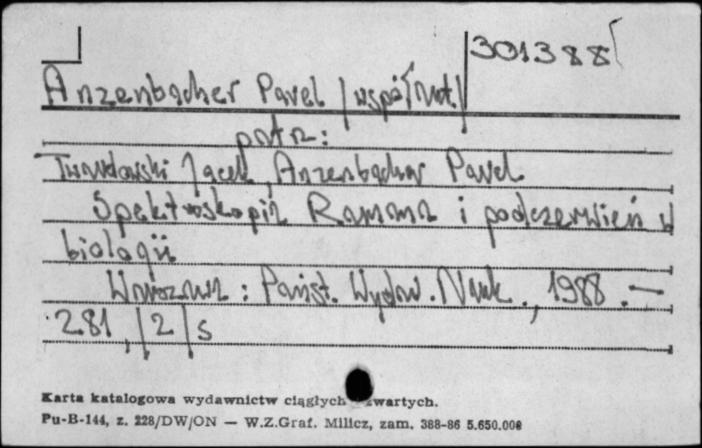 301388
Anzenbacher Pavel /współaut./
patrz:
Twardowski Jacek, Anzenbacher Pavel
Spektroskopia Ramana i podczerwieni w
biologii
Warszawa : Państ. Wydaw. Nauk., 1988. —
281, /2/ s
Karta katalogowa wydawnictw ciągłych zwartych.
Pu-B-144, z. 228/DW/ON — W.Z.Graf. Milicz, zam. 388-86 5.650.000